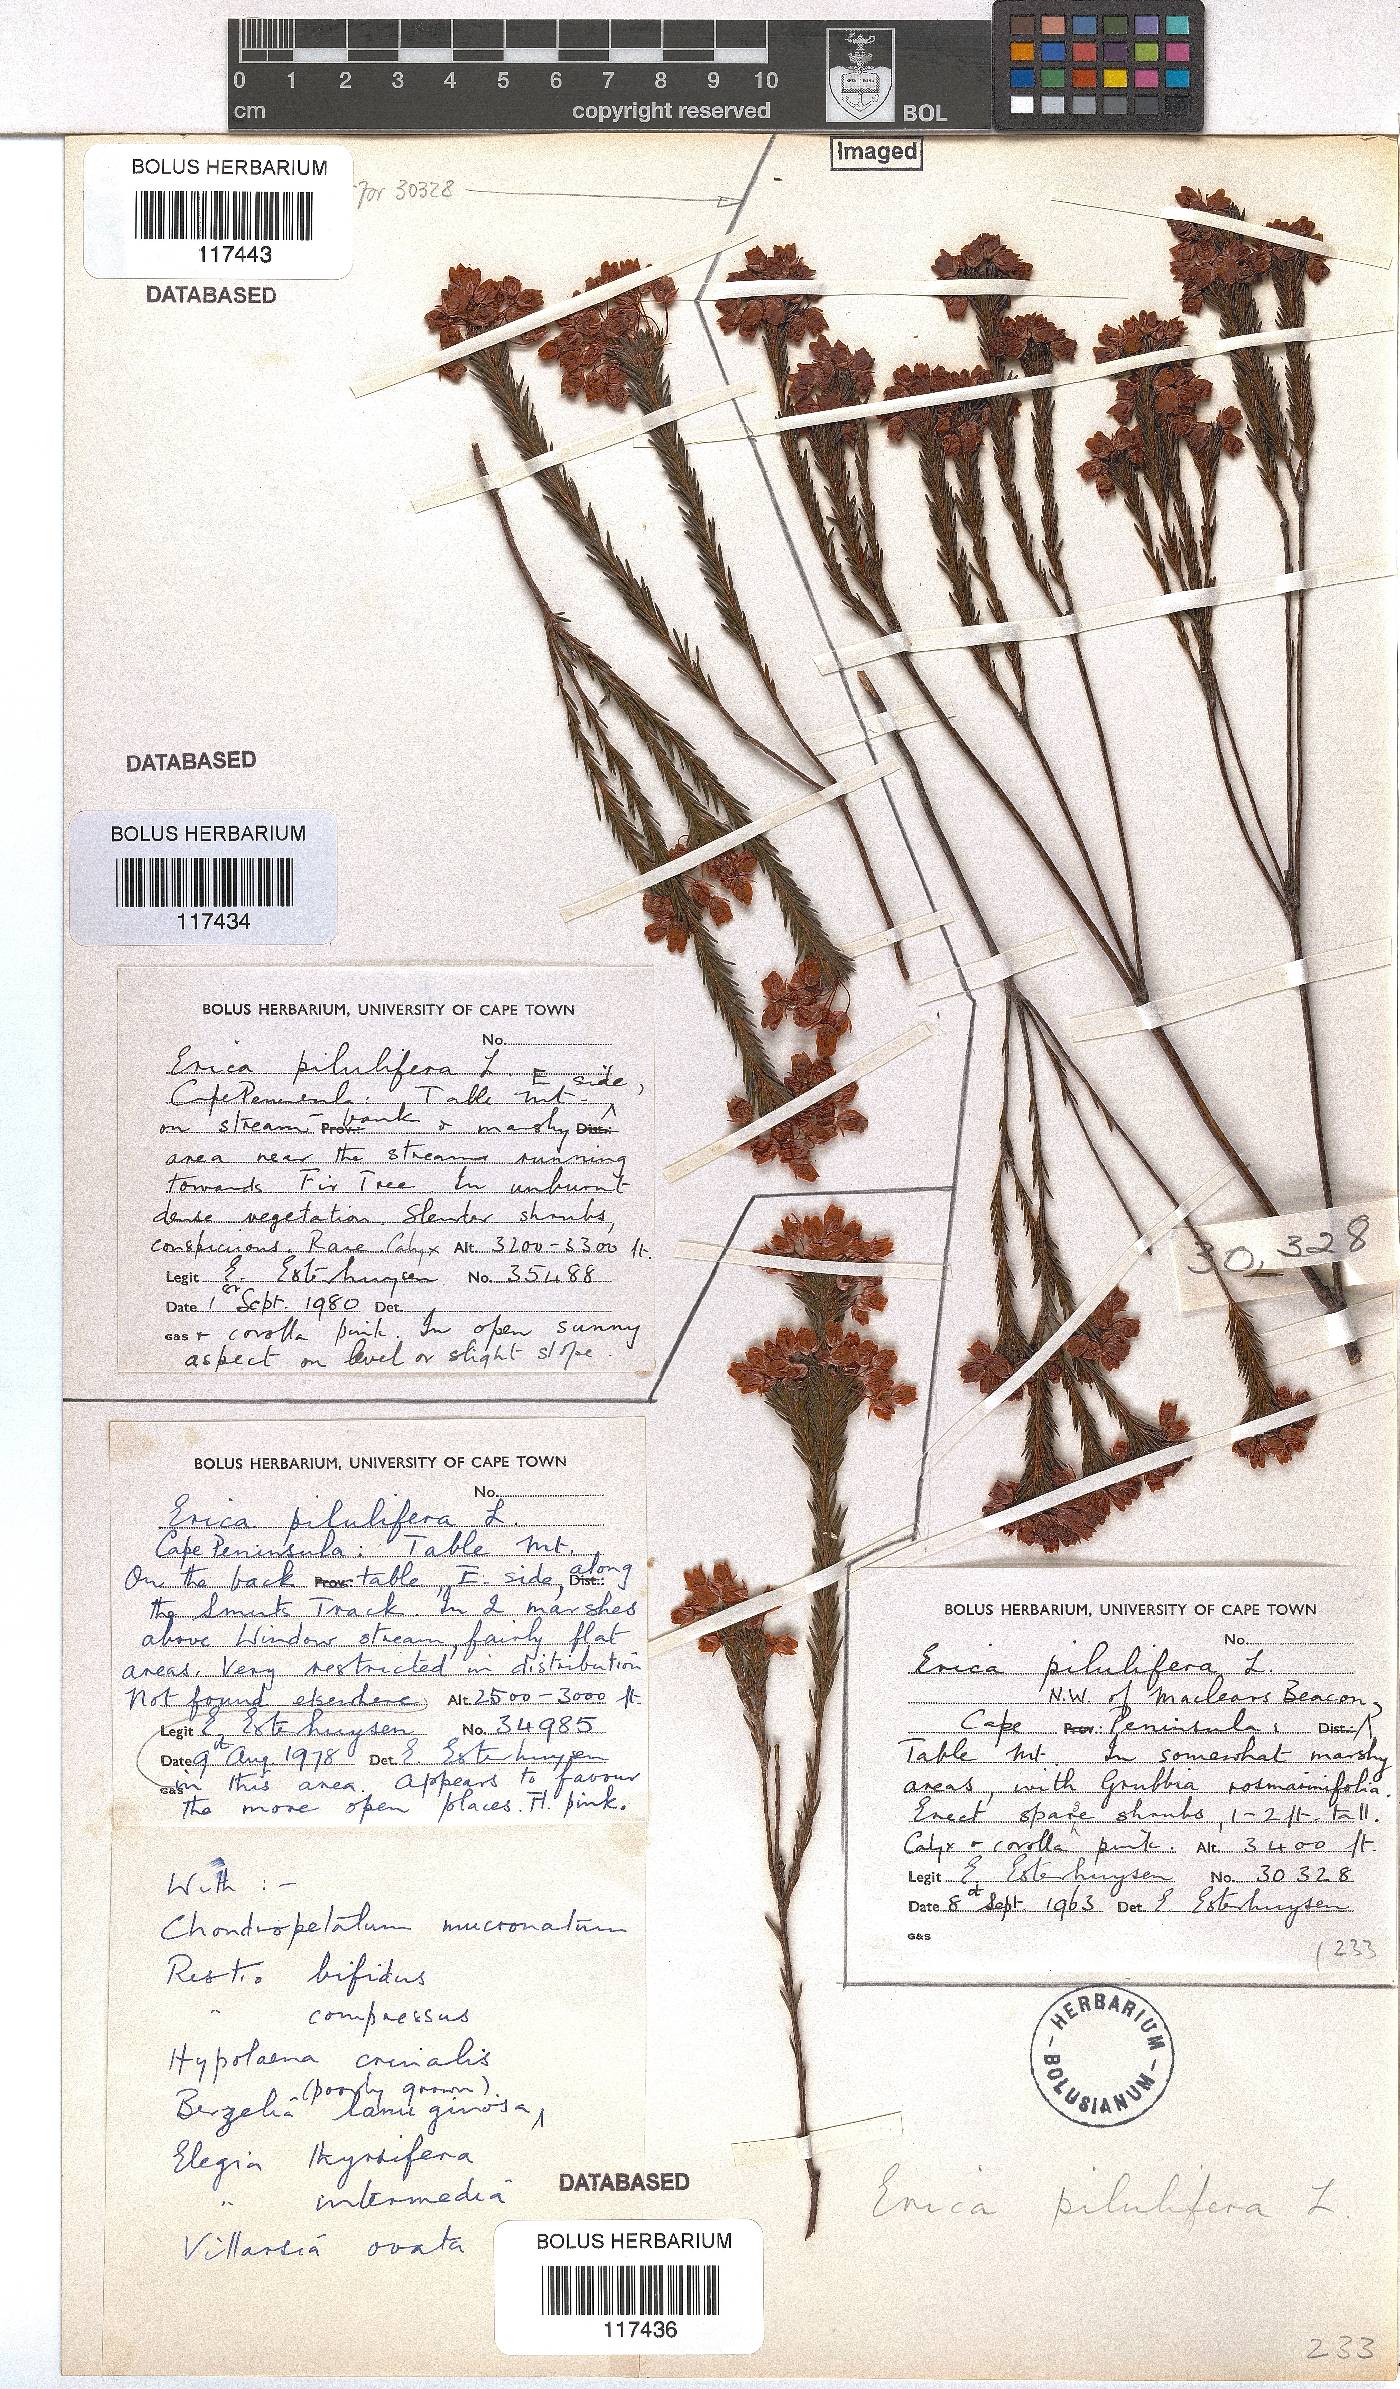 0 1 2 3 4 5 6 7 8 9 10
cm
copyright reserved
BOL
Imaged
BOLUS HERBARIUM
117443
for 30328
DATABASED
DATABASED
BOLUS HERBARIUM
117434
BOLUS HERBARIUM, UNIVERSITY OF CAPE TOWN
No.
Erica pilulifera L.
Cape Peninsula: Table Mt. E side,
on stream-bank Prov.: & marshy Dist.:
area near the stream running
towards Fir Tree In unburnt
dense vegetation. Slender shrubs,
conspicuous. Rare. Calyx Alt. 3200-3300 ft.
Legit E. Esterhuysen No. 35488
Date 1st Sept. 1980 Det.
G&S & corolla pink. In open sunny
aspect on level or slight slope.
BOLUS HERBARIUM, UNIVERSITY OF CAPE TOWN
No.
Erica pilulifera L.
Cape Peninsula: Table Mt.
On the back Prov.: table, E. side, along Dist.:
the Smuts Track. In 2 marshes
above Window stream, fairly flat
areas. Very restricted in distribution
Not found elsewhere Alt. 2500-3000 ft.
Legit E. Esterhuysen No. 34985
Date 9th Aug. 1978 Det. E. Esterhuysen
G&S in this area. Appears to favour
the more open places. Fl. pink.
With :-
Chondropetalum mucronatum
Restio bifidus
" compressus
Hypolaena crinalis
(poorly grown).
Berzelia lanuginosa,
Elegia thyrsifera
" intermedia
Villarsia ovata
DATABASED
BOLUS HERBARIUM
117436
30,328
BOLUS HERBARIUM, UNIVERSITY OF CAPE TOWN
No.
Erica pilulifera L.
N.W. of Maclears Beacon,
Cape Prov.: Peninsula: Dist.:
Table Mt. In somewhat marshy
areas, with Grubbia rosmarinifolia.
Erect sparse shrubs, 1-2 ft. tall.
Calyx & corolla pink. Alt. 3400 ft.
Legit E. Esterhuysen No. 30328
Date 8th Sept. 1963 Det E Esterhuysen
G&S
233
HERBARIUM
BOLUSIANUM
Erica pilulifera L.
233